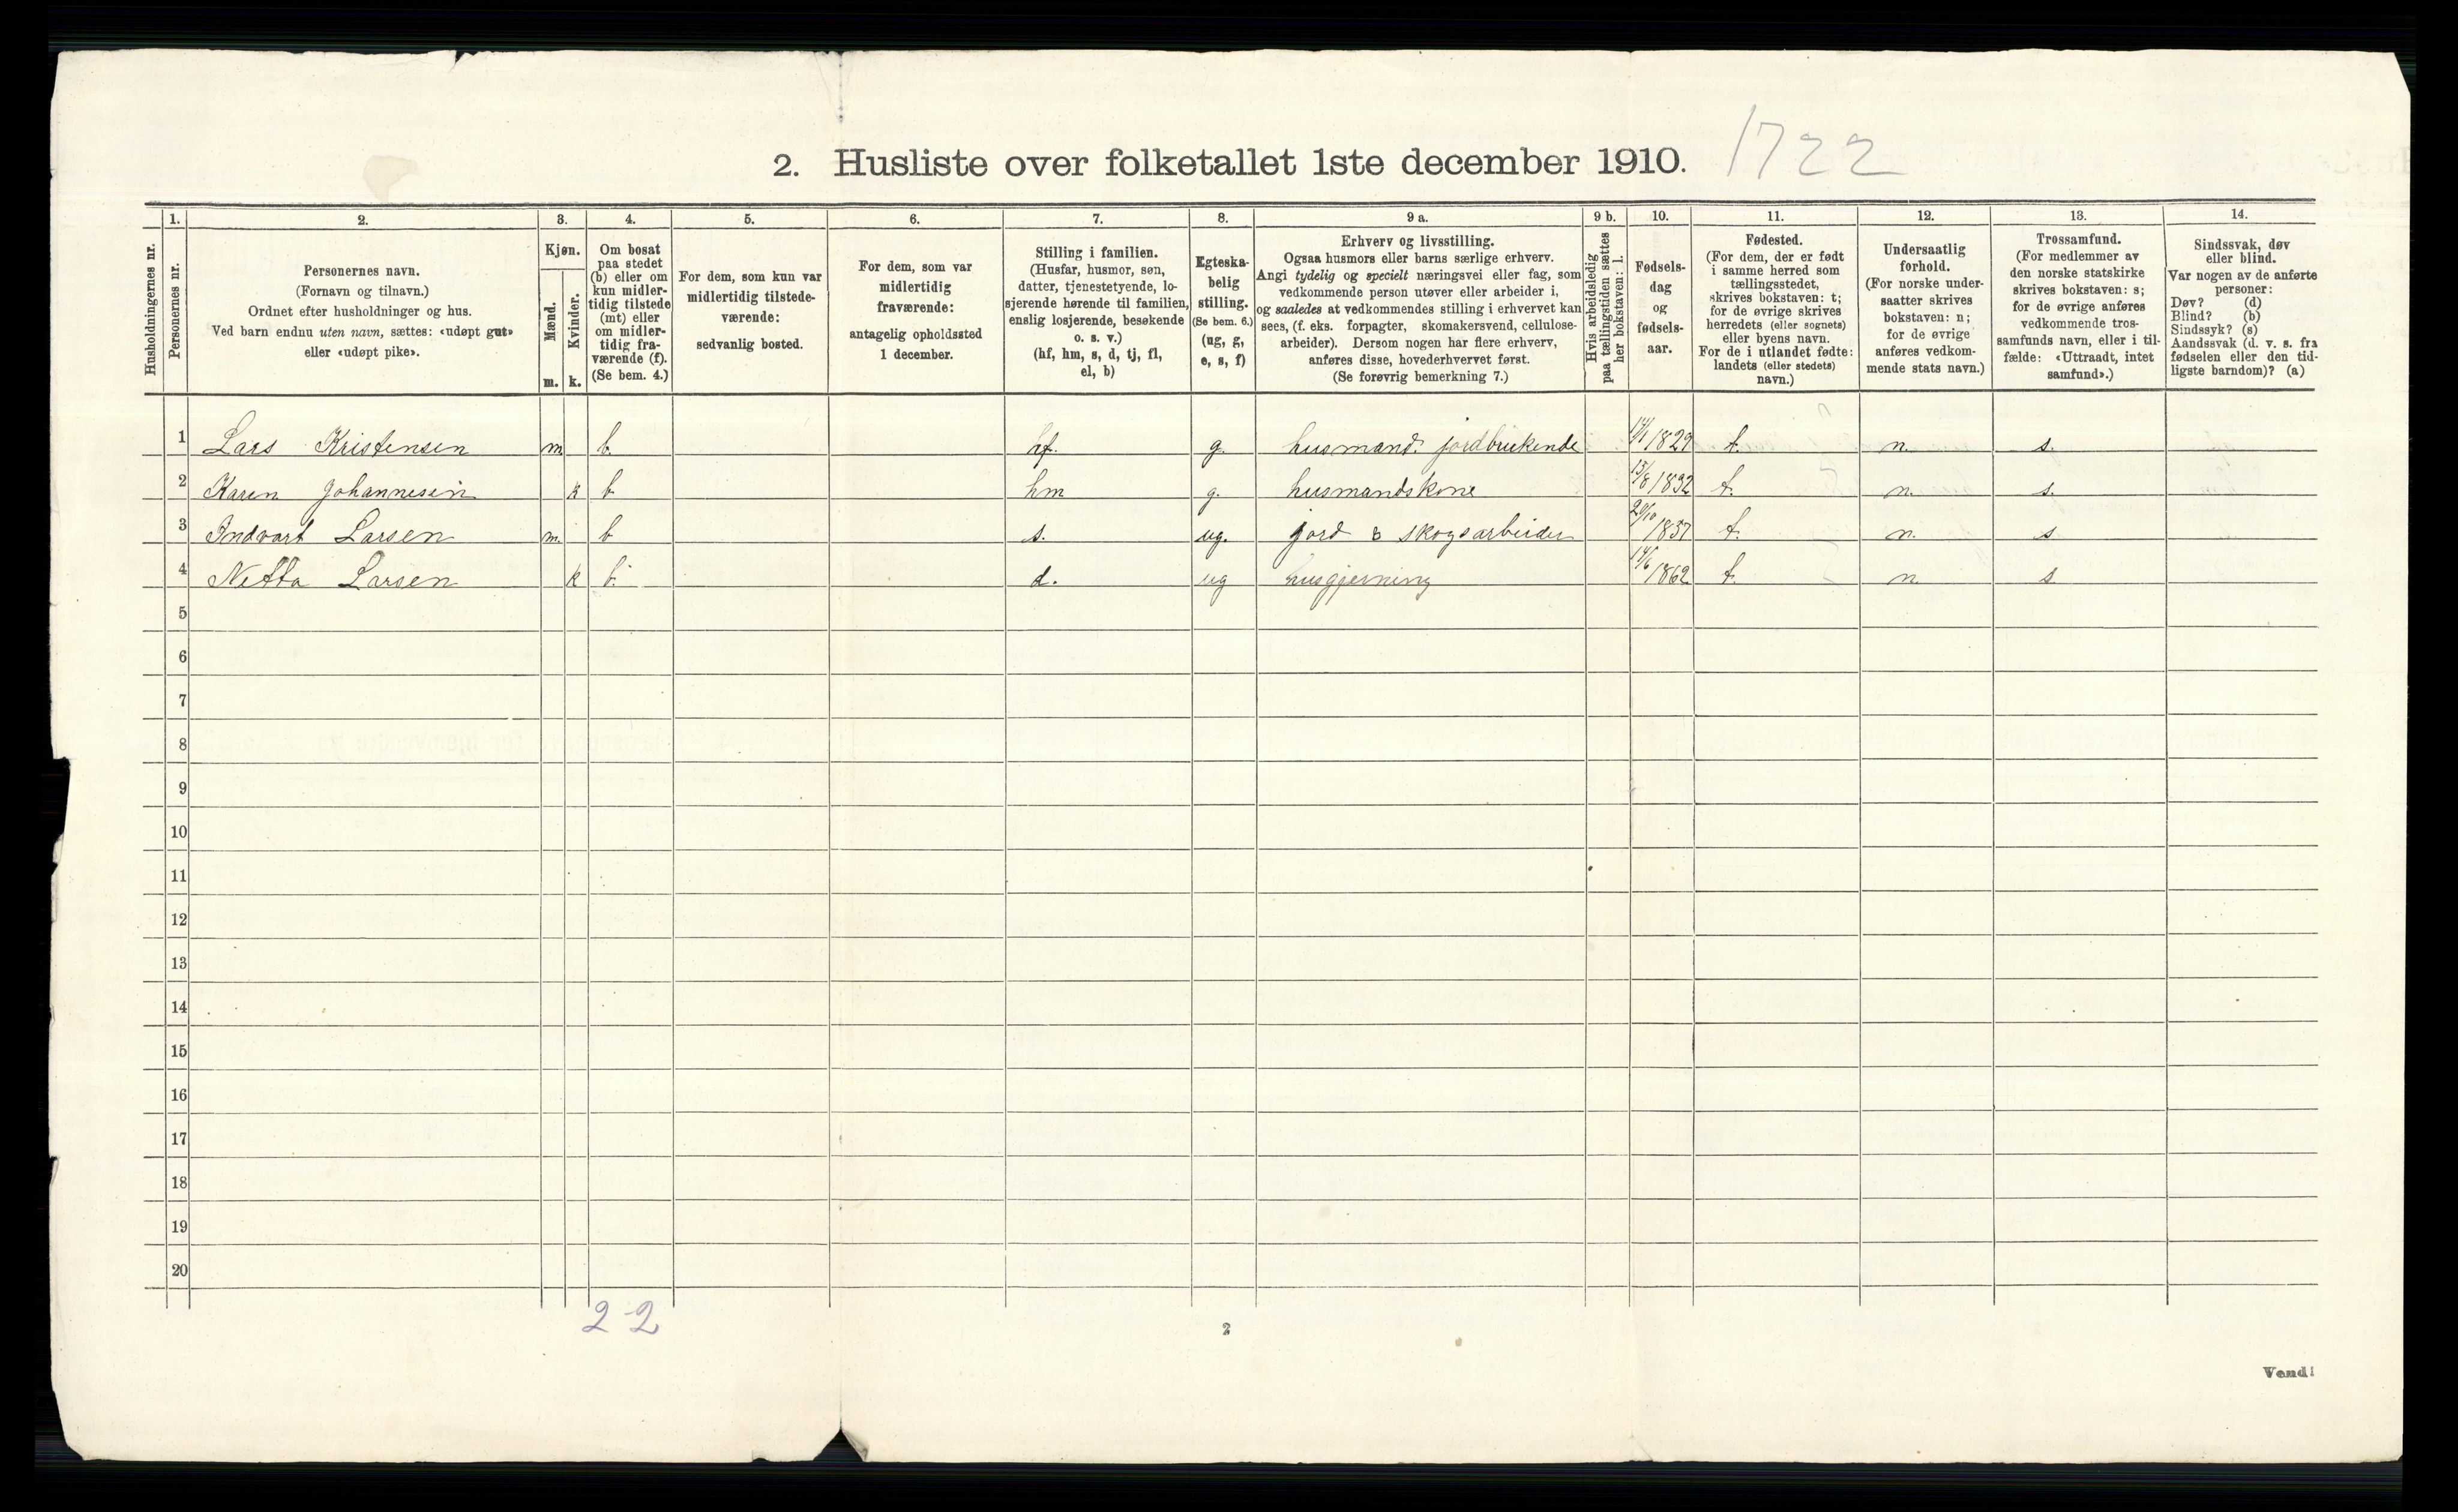 2. Husliste over folketallet 1ste december 1910. 1722
Husholdningernes nr.
1.
Personernes nr.
2.
Personernes navn.
(Fornavn og tilnavn.)
Ordnet efter husholdninger og hus.
Ved barn endnu uten navn, sættes: «udøpt gut»
eller «udøpt pike».
3.
Kjøn.
Mænd.
m.
Kvinder.
k.
4.
Om bosat
paa stedet
(b) eller om
kun midler-
tidig tilstede
(mt) eller
om midler-
tidig fra-
værende (f).
(Se bem. 4.)
5.
For dem, som kun var
midlertidig tilstede-
værende:
sedvanlig bosted.
6.
For dem, som var
midlertidig
fraværende:
antagelig opholdssted
1 december.
7.
Stilling i familien.
(Husfar, husmor, søn,
datter, tjenestetyende, lo-
sjerende hørende til familien,
enslig losjerende, besøkende
o. s. v.)
(hf, hm, s, d, tj, fl,
el, b)
8.
Egteska-
belig
stilling.
(Se bem. 6.)
(ug, g,
e, s, f)
9 a.
Erhverv og livsstilling.
Ogsaa husmors eller barns særlige erhverv.
Angi tydelig og specielt næringsvei eller fag, som
vedkommende person utøver eller arbeider i,
og saaledes at vedkommendes stilling i erhvervet kan
sees, (f. eks. forpagter, skomakersvend, cellulose-
arbeider). Dersom nogen har flere erhverv,
anføres disse, hovederhvervet først.
(Se forøvrig bemerkning 7.)
9 b.
Hvis arbeidsledig
paa tællingstiden sættes
her bokstaven: l.
10.
Fødsels-
dag
og
fødsels-
aar.
11.
Fødested.
(For dem, der er født
i samme herred som
tællingsstedet,
skrives bokstaven: t;
for de øvrige skrives
herredets (eller sognets)
eller byens navn.
For de i utlandet fødte:
landets (eller stedets)
navn.)
12.
Undersaatlig
forhold.
(For norske under-
saatter skrives
bokstaven: n;
for de øvrige
anføres vedkom-
mende stats navn.)
13.
Trossamfund.
(For medlemmer av
den norske statskirke
skrives bokstaven: s;
for de øvrige anføres
vedkommende tros-
samfunds navn, eller i til-
fælde: «Uttraadt, intet
samfund».)
14.
Sindssvak, døv
eller blind.
Var nogen av de anførte
personer:
Døv? (d)
Blind? (b)
Sindssyk? (s)
Aandssvak (d. v. s. fra
fødselen eller den tid-
ligste barndom)? (a)
1 Lars Kristensen m. b. hf. g. husmand. jordbrukende 1829 t. n. s.
2 Karen Johannesen k b. hm g. husmandskone 13/8 1832 t. n. s.
3 Indvart Larsen m. b s. ug. jord & skogsarbeider 20/10 1857 t. n. s
4 Netta Larsen k b. d. ug husgjerning 14/6 1862 t. n. s
5
6
7
8
9
10
11
12
13
14
15
16
17
18
19
20
2-2
2
Vend!